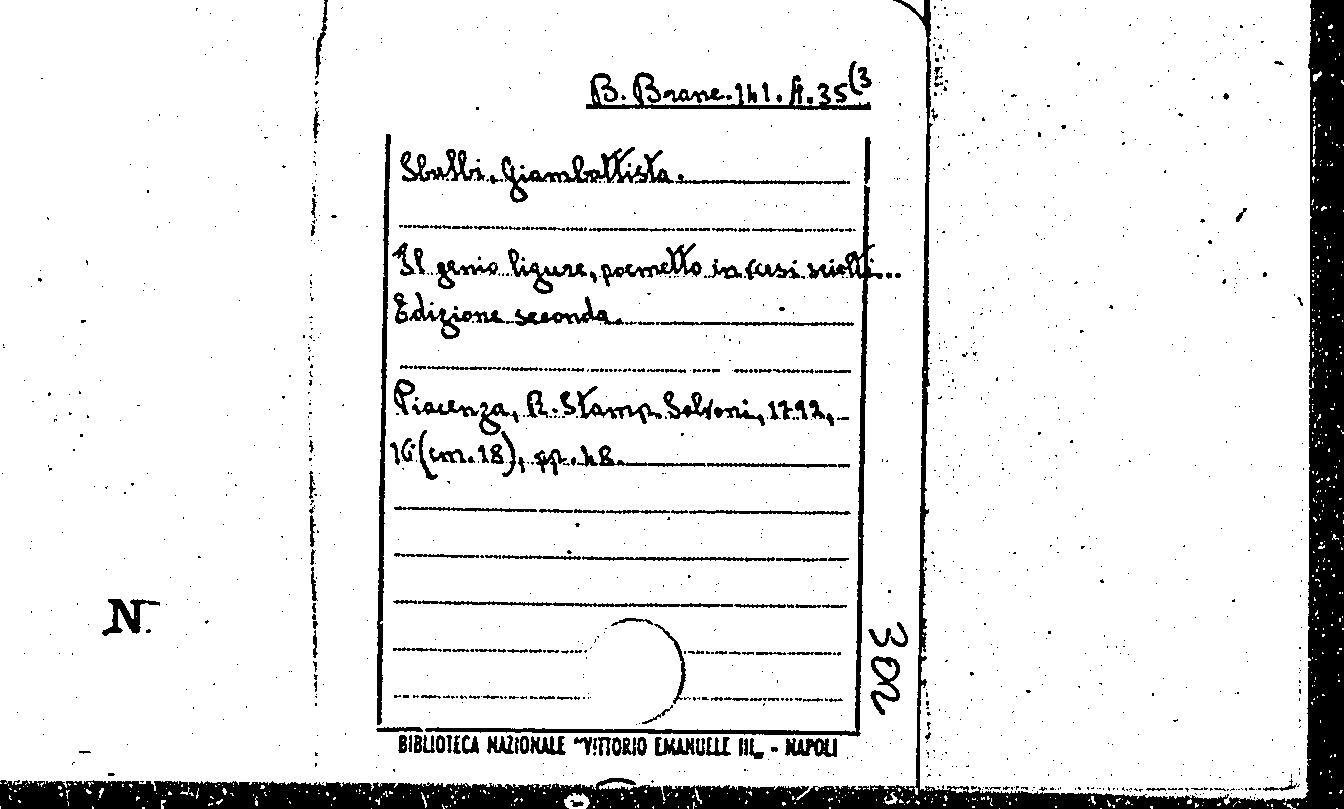 B. Branc. 141. A. 35(3
Giambattista.
Il genio ligure, poemetto in versi sciolti...
Edizione seconda.
Piacenza, R. Stamp. Salvoni, 1792,
16° (cm. 18), pp. 48.
N.
BIBLIOTECA NAZIONALE "VITTORIO EMANUELE III„ - NAPOLI